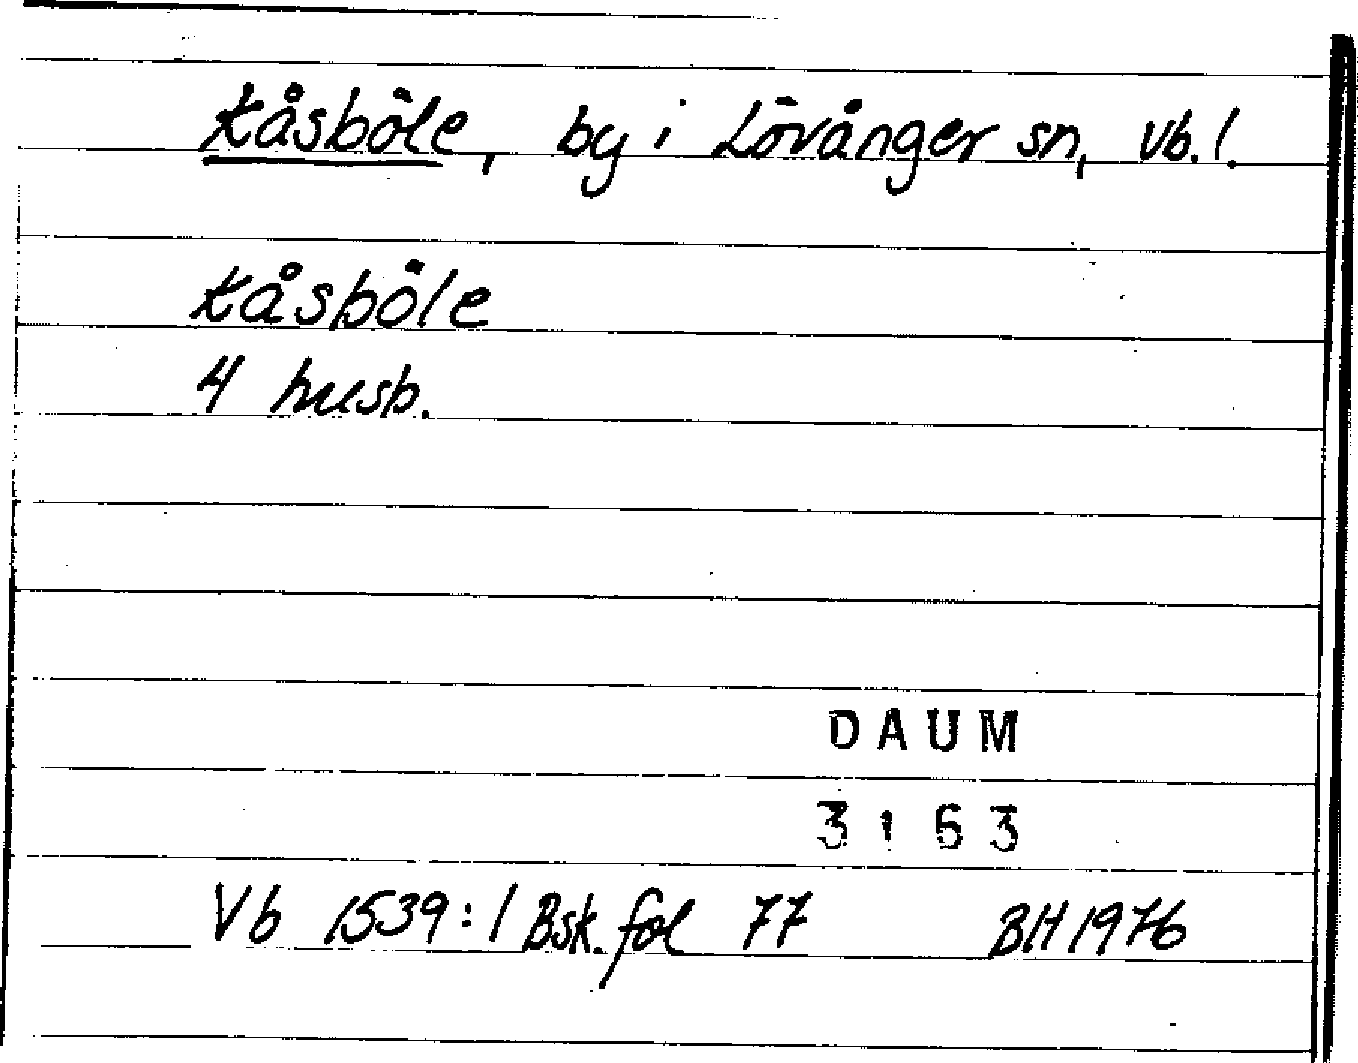 Kåsböle, by i Lövånger sn, Vb. l.
Kåsböle
4 husb.
DAUM
3163
Vb 1539:1 Bsk. fol 77 BH 1976